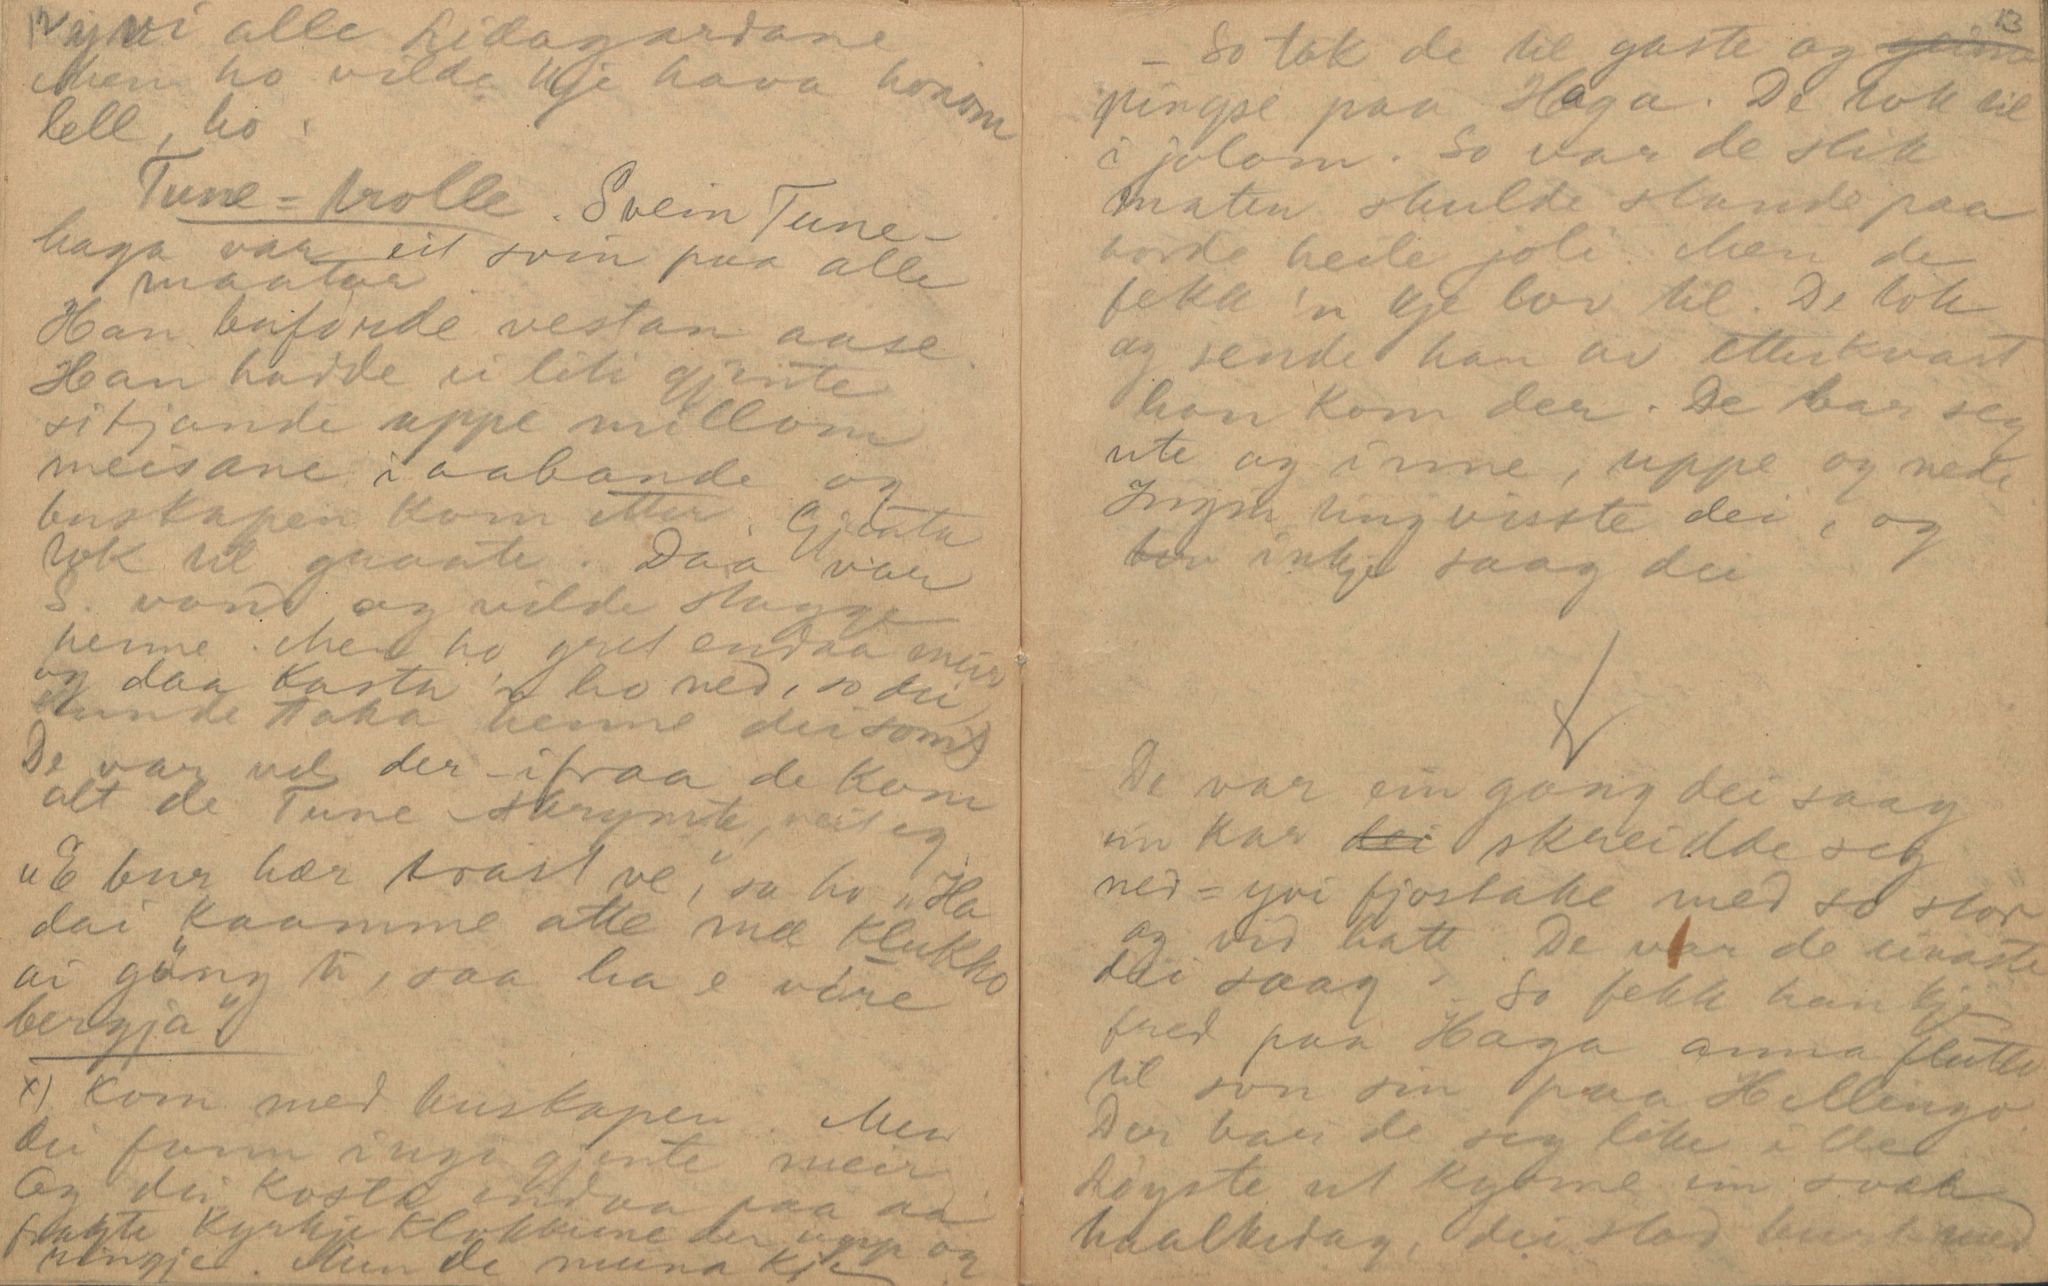 12
yvi alle Lidagardane
Men ho vilde kje hava honom
lell, ho.
Tune-trolle. Svein Tune-
haga var eit svin paa alle
maatar
Han buforde vestan aase.
Han hadde ei liti gjente
sitjande uppe millom
meisane i aabande og
buskapen kom etter. Gjenta
tok til graate. Daa var
S. vond og vilde stagge
henne. Men ho gret endaa meir
og daa kasta 'n ho ned, so dei
kunde taka henne dei som x)
De var vel der-ifraa de kom
alt de Tune-skrymte, veit eg
"E bur hær trast ve," sa ho "Ha
dai kaamme atte mæ klukko
ai gång te, saa ha e vore
bergja".
x) kom med buskapen. Men
dei funn ingi gjente meir
Og dei kosta endaa paa aa
frakte kyrkjeklokkune der upp og
ringje. Men de muna kje
13
- So tok de til gaste og
ringje paa Haga. De tok til
i jolom. So var de slik
maten skulde stande paa
borde heile joli. Men de
fekk 'n kje lov til. De tok
og sende han av etterkvart
han kom der. De bar seg
ute og inne, uppe og nede
Ingin ting visste dei, og
inkje saag dei
De var ein gong dei saag
ein kar dei skreidde seg
ned-yvi fjostake med so stor
og vid hatt. De var de einaste
dei saag. So fekk han kje
fred paa Haga anna flutte
til son sin paa Hellingo
Der bar de seg like ille
Løyste ut kyrne ein
haalkedag, dei stod burt med